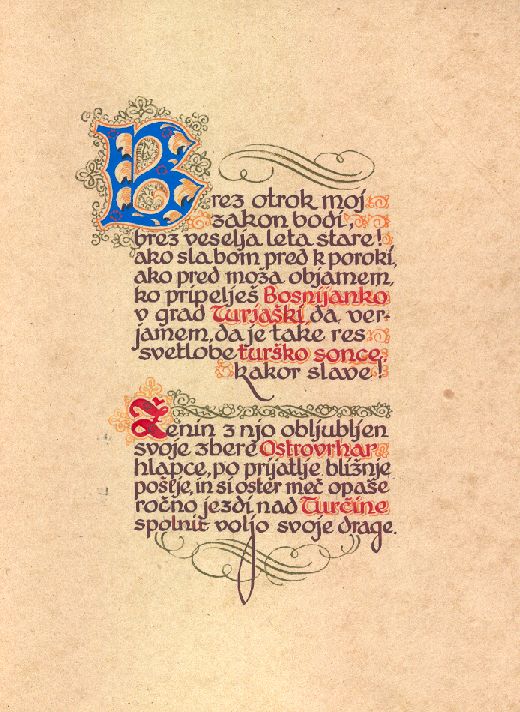 Brez otrok moj
zakon bodi,
brez veselja leta stare!
ako slabom pred k poroki,
ako pred moža objamem,
ko pripelješ Bosnijanko
v grad Turjaški, da ver-
jamem, da je take res
svetlobe turško sonce,
kakor slave!
Ženin z njo obljubljen
svoje zbere Ostrovrhar
hlapce, po prijatlje bližnje
pošlje, in si oster meč opaše
ročno jezdi nad Turčine
spolnit voljo svoje drage.